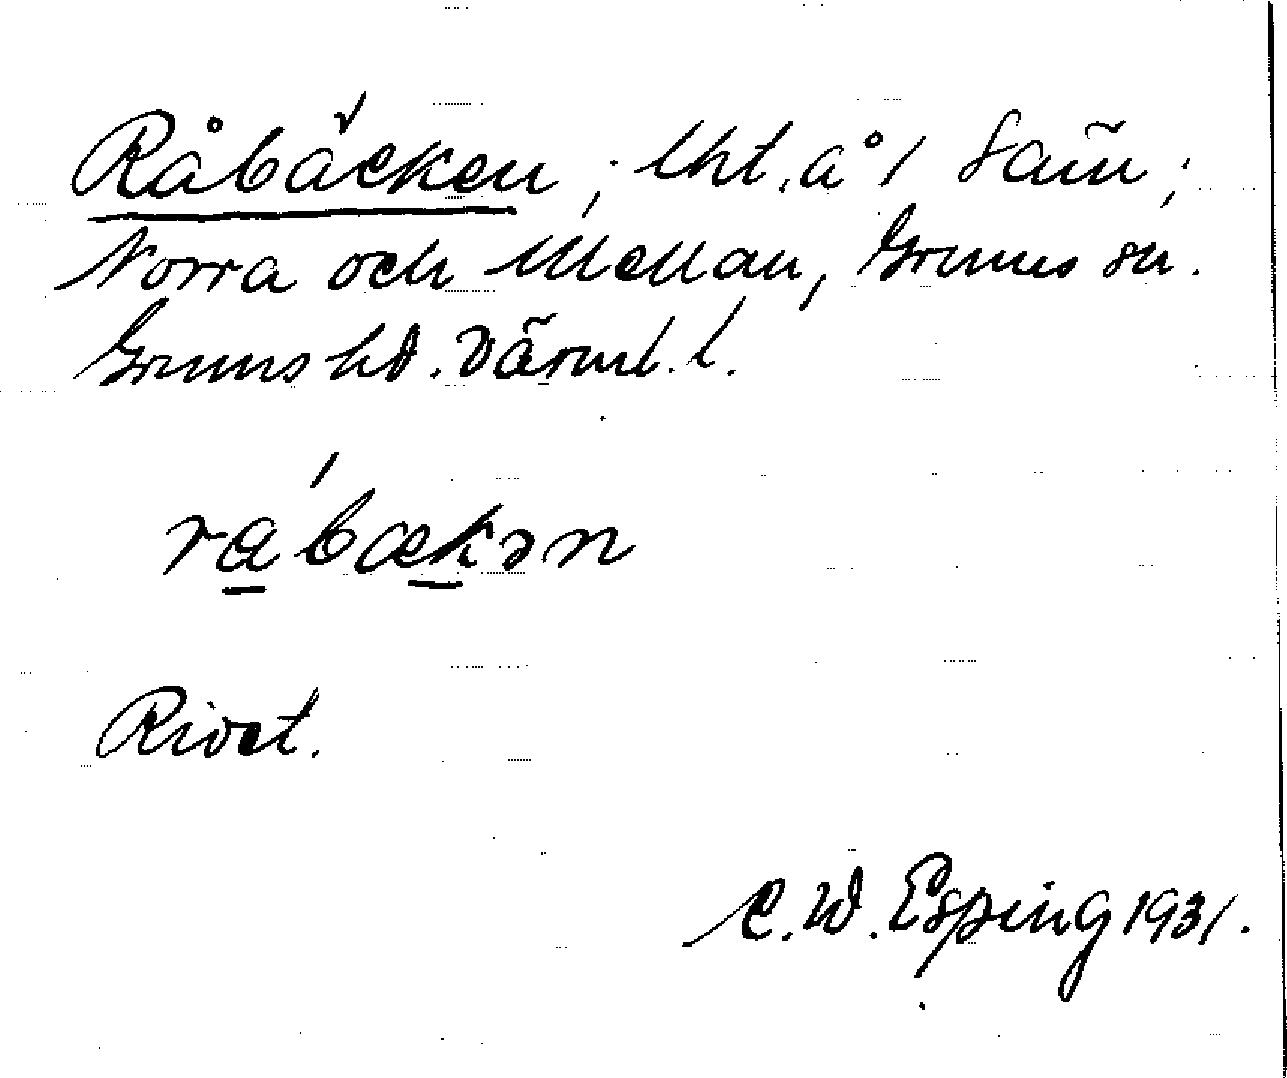 Råbäcken; lht. å 1 Sam̃;
Norra och Mellan, Grums sn.
Grums hd. Värml. l.
ra̱´bæḵən
Rivet.
C. W. Esping 1931.